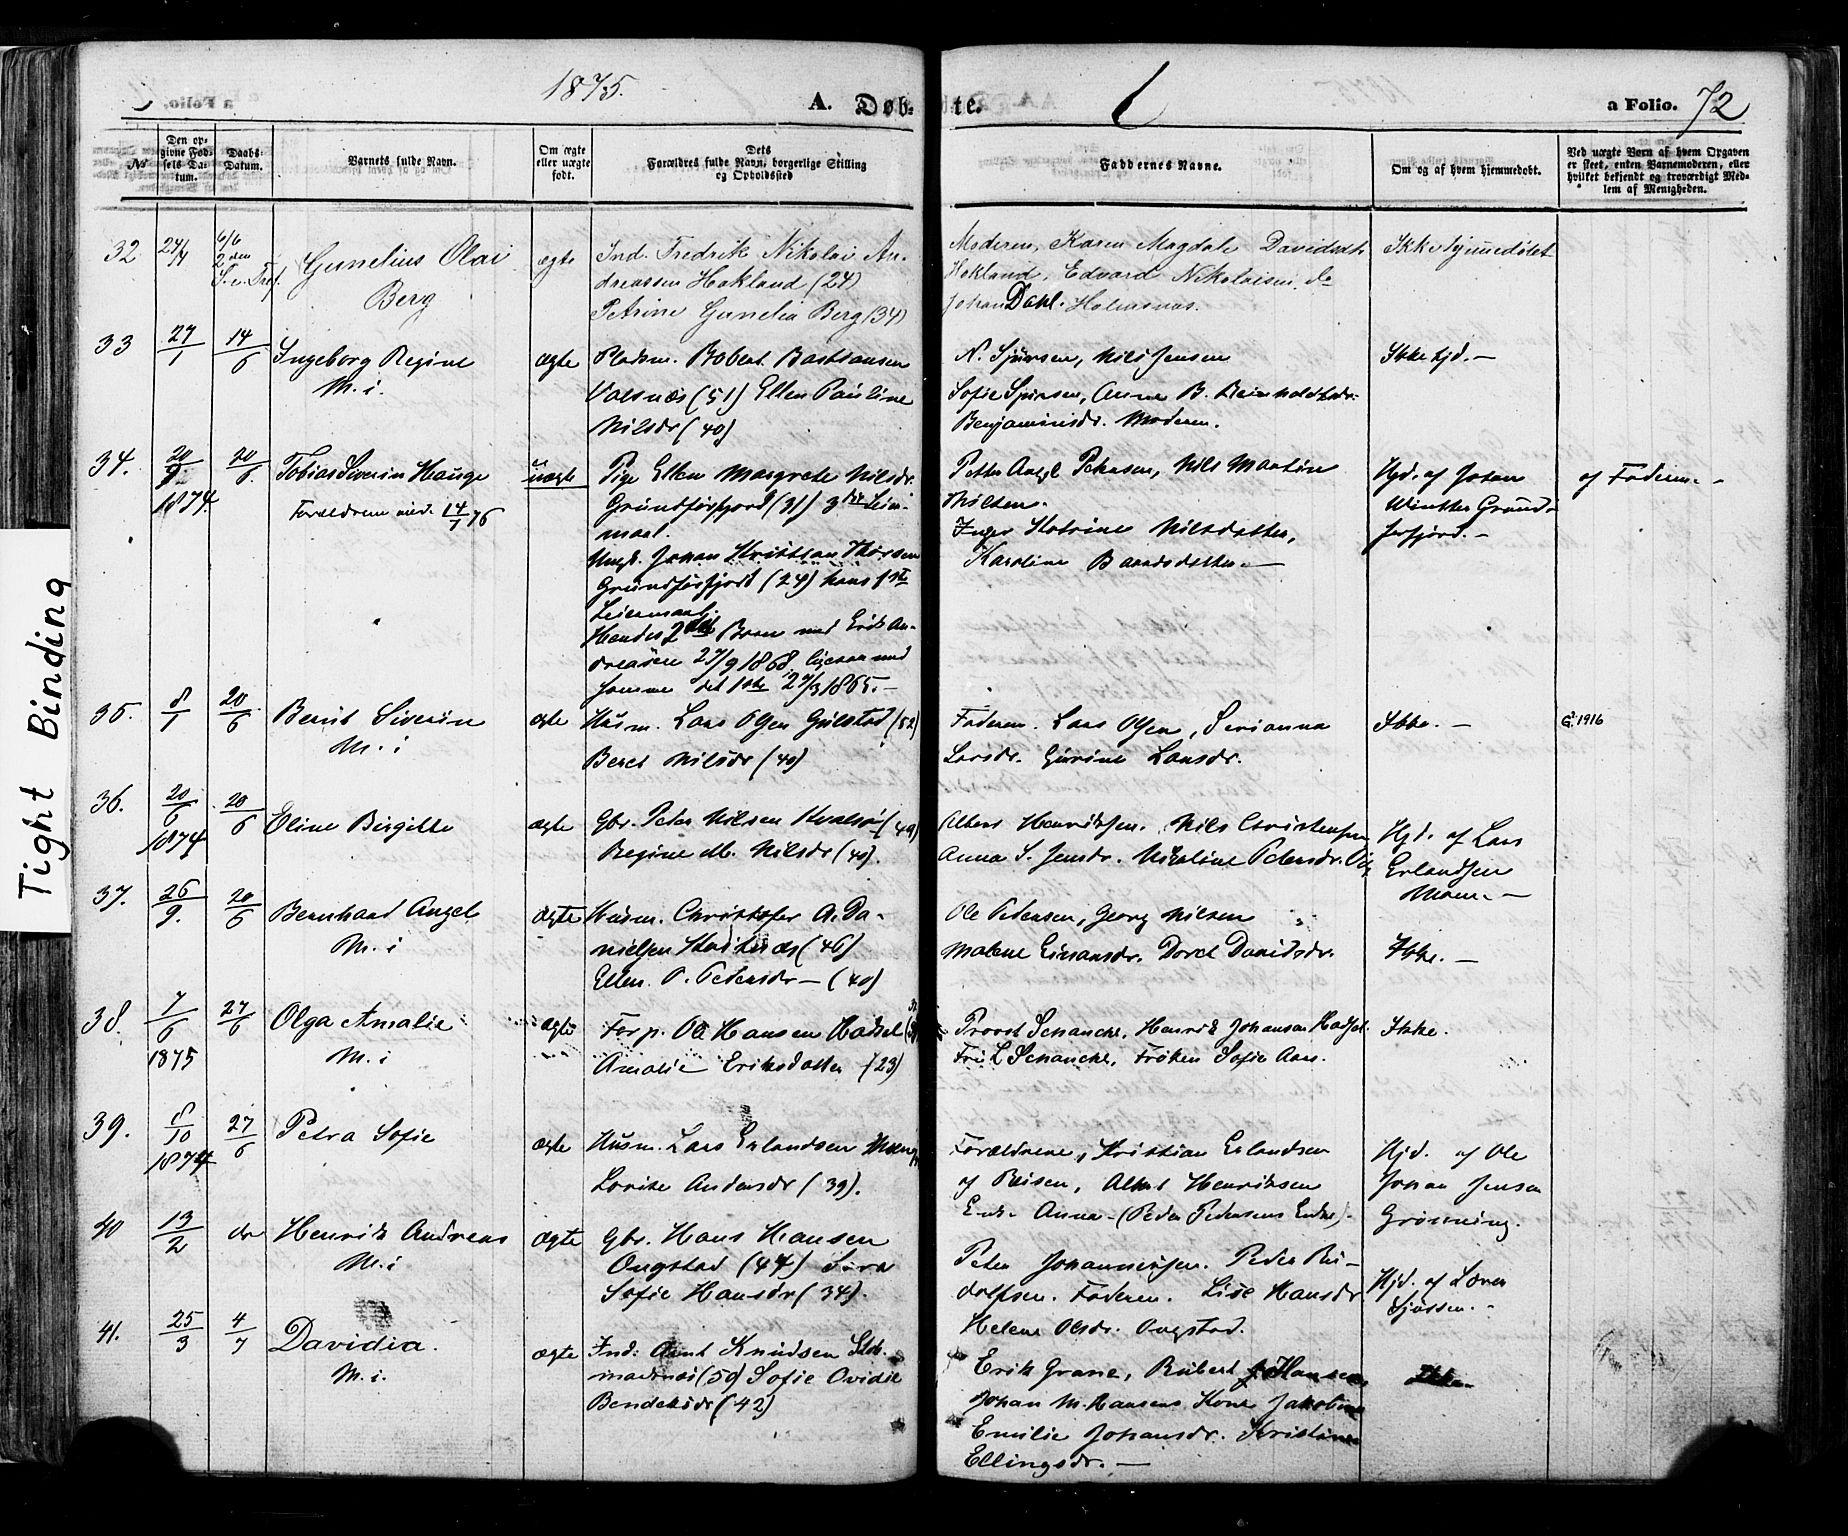 1875.
A. Døb-
te.
a Folio. 72
№
Den op-
givne Fød-
sels Da-
tum.
Daabs-
Datum.
Barnets fulde Navn.
Om ægte
eller uægte
født.
Dets
Forældres fulde Navn, borgerlige Stilling
og Opholdssted
Faddernes Navne.
Om og af hvem hjemmedøbt.
Ved uægte Børn af hvem Opgaven
er skeet, enten Barnemoderen, eller
hvilket bekjendt og troværdigt Med-
lem af Menigheden.
Tight Binding
32
24/4
6/6
2 den
S. e. Tref.
Gunelius Olai
Berg
ægte
Ind. Fredrik Nikolai An-
dreassen Hokland (24)
Petrine Gunelia Berg (34)
Moderen, Karen Magdale Davidsdtr
Hokland, Edvard Nikolaisen do
Johan Dahl. Holmsnes.
Ikke hjemmedøbt
33
27/1
14/6
Ingeborg Regine
M. i.
ægte
Pladsm. Robert Bastiansen
Valsnæs (51) Ellen Pauline
Nilsdr (40)
N. Sjursen, Nils Jensen
Sofie Sjursen, Anne B. Reinholdtsdr.
Benjaminsdr. Moderen.
Ikke hjd. —
34.
20/9.
1874
20/6.
Tobias Siverin Hauge
Forældrene vied. 14/7 76
uægte
Pige Ellen Margrete Nilsdr.
Grundførfjord (31) 3die Leier-
maal.
Ungk. Johan Kristian Thorsen
Grundførfjord (24) hans 1ste
Leiermaal.
Hendes 2det Barn med Erik An-
dreasen 27/9 1868, ligesaa med
samme det 1ste 27/3 1865. —
Petter Angel Petersen, Nils Martin
Nilsen.
Inger Katrine Nilsdatter,
Karoline Baardsdatter. —
Hjd. af Johan
Winther Grund-
førfjord. —
af Faderen. —
35.
8/1
20/6
Bernt Siverin
M. i
ægte
Husm. Lars Olsen Gulstad (52)
Beret Nilsdr (40)
Faderen. Lars Olsen, Serianna
Larsdr. Gurine Larsdr.
Ikke. —
G. 1916
36.
20/6
1874
20/6
Eline Birgitte
ægte
Gbr. Peter Nilsen Kvalsø (49)
Regine M. Nilsdr (40).
Albert Henriksen. Nils Christensen
Anna S. Jensdr. Nikoline Petersdr.
Hjd. af Lars
Erlandsen
Moen. —
37.
26/9.
20/6
Bernhard Angel
M. i
ægte
Husm. Christofer A. Da-
nielsen (46)
Ellen P. Pedersdr — (40)
Ole Pedersen, Georg Nilsen
Malene Eriansdr. Doret Davidsdr.
Ikke. —
38.
7/6
1875
27/6
Olga Amalie
M. i
ægte
Forp. Ole Hansen Hadsel
Amalie Eriksdatter (23)
Provst Schancke, Henrik Johansen Hadsel.
Fru L Schancke, Frøken Sofie Aas.
Ikke.
39.
8/10
1874
27/6
Petra Sofie
ægte
Husm. Lars Erlandsen Moen
Lovise Andersdr (39).
Forældrene, Kristian Erlandsen
af Reisen, Albert Henriksen
Enke Anna — (Peder Pedersens Enke).
Hjd. af Ole
Johan Jensen
Grønning.
40
13/2
do
Henrik Andreas
M. i
ægte
Gbr. Hans Hansen
Ongstad (44) Sara
Sofie Hansdr (34).
Peter Johannessen. Peder Ru-
dolfsen. Faderen. Lise Hansdr
Helene Olsdr. Ongstad.
Hjd. af Søren
Sjursen. —
41.
25/3
4/7
Davidia.
M. i.
ægte
Ind: Arnt Knudsen Stok-
marknæs (50) Sofie Ovidie
Bendeksdr (42)
Erik Grane, Robert J. Hansen
Johan M. Hansens Kone Jakobine
Emilie Johansdr. Kristine
Ellingsdr. —
Ikke